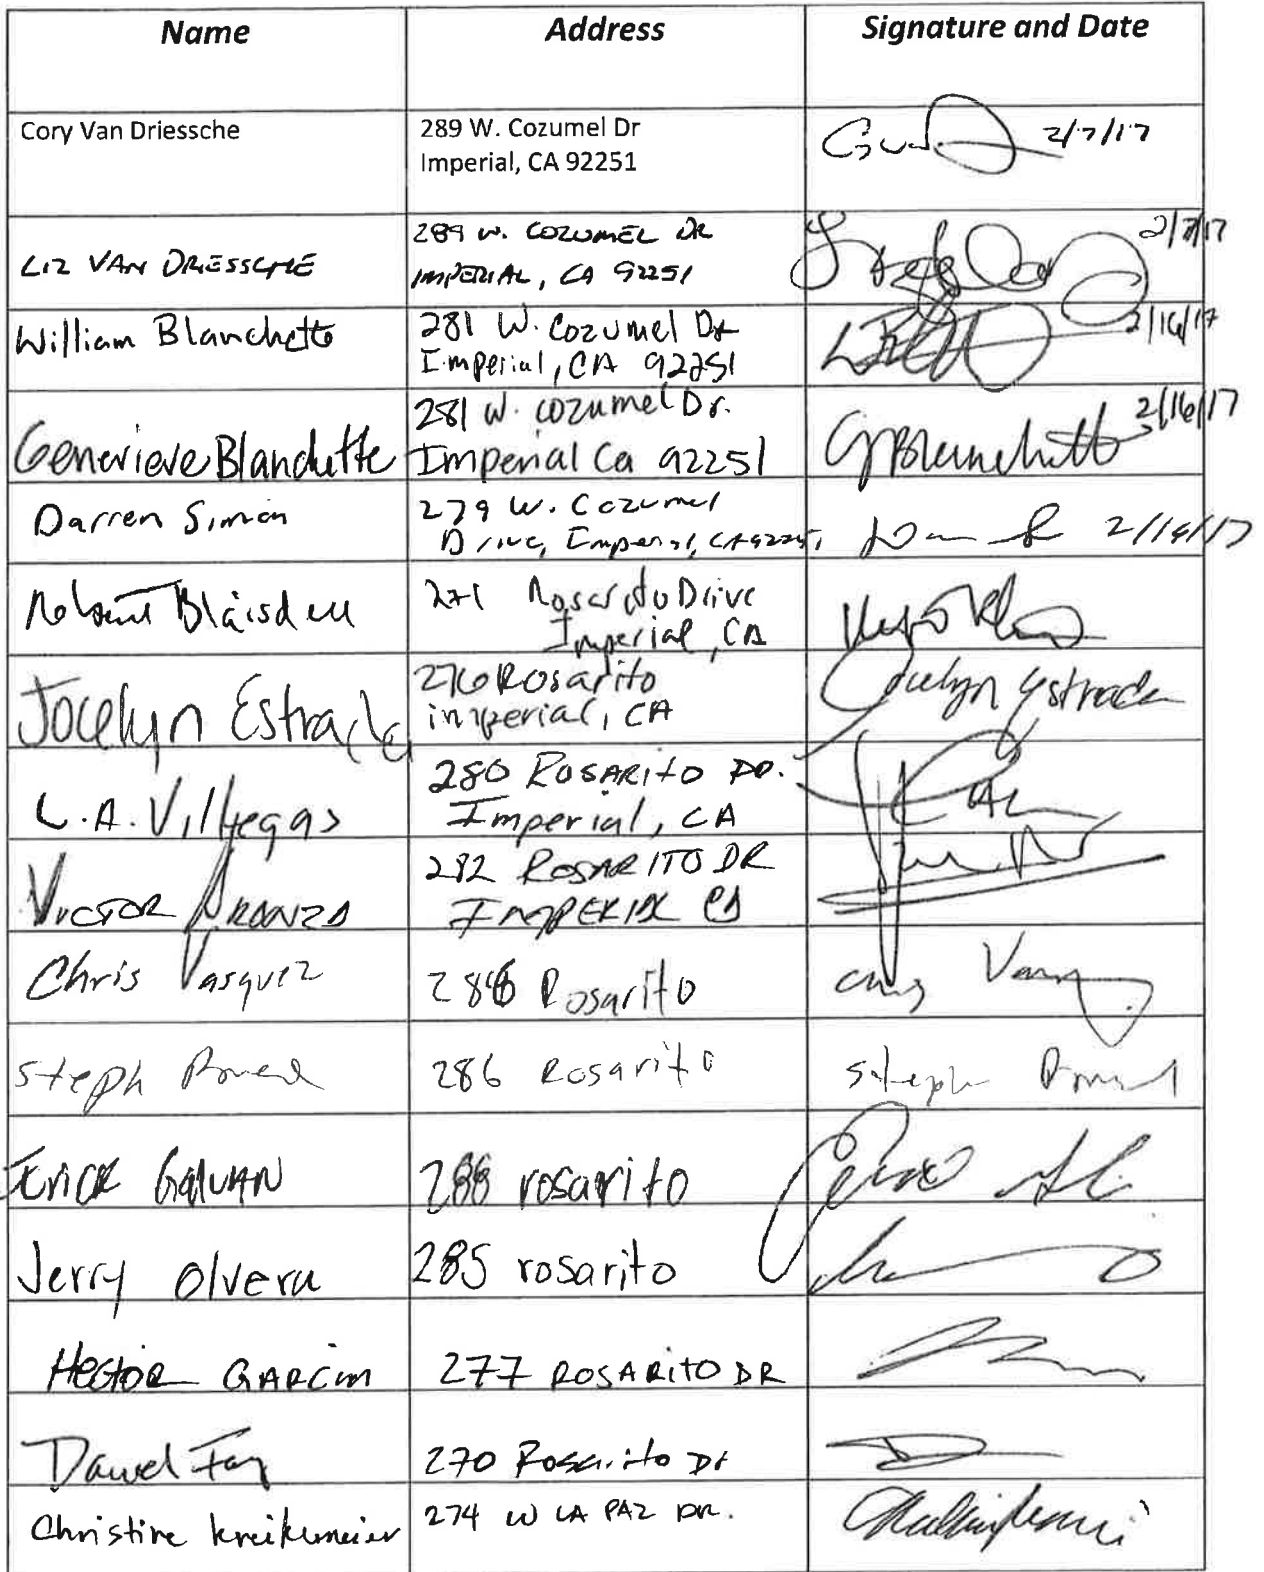 Name Address Signature and Date
Cory Van Driessche 289 W. Cozumel Dr 2/7/17
Imperial, CA 92251
LIZ VAN DRIESSCHE 289 W. COZUMEL DR 2/7/17
IMPERIAL, CA 92251
William Blanchette 281 W. Cozumel Dr 2/16/17
Imperial, CA 92251
Genevieve Blanchette 281 W. Cozumel Dr. GBlanchette 2/16/17
Imperial Ca 92251
Darren Simon 279 W. Cozumel 2/16/17
Drive, Imperial, CA 92251
Blaisdell 271 Rosarito Drive
Imperial, CA
Jocelyn Estrada 276 Rosarito Jocelyn Estrada
imperial, CA
L.A. Villegas 280 ROSARITO DR.
Imperial, CA
VICTOR ARANZA 282 ROSARITO DR
IMPERIAL CA
Chris Vasquez 286 Rosarito Chris
Steph 286 Rosarito Steph
Erick GALVAN 288 rosarito
Jerry Olvera 285 rosarito
HECTOR GARCIA 277 ROSARITO DR
Daniel 270 Rosarito Dr
Christine Kreikemeier 274 W LA PAZ DR.